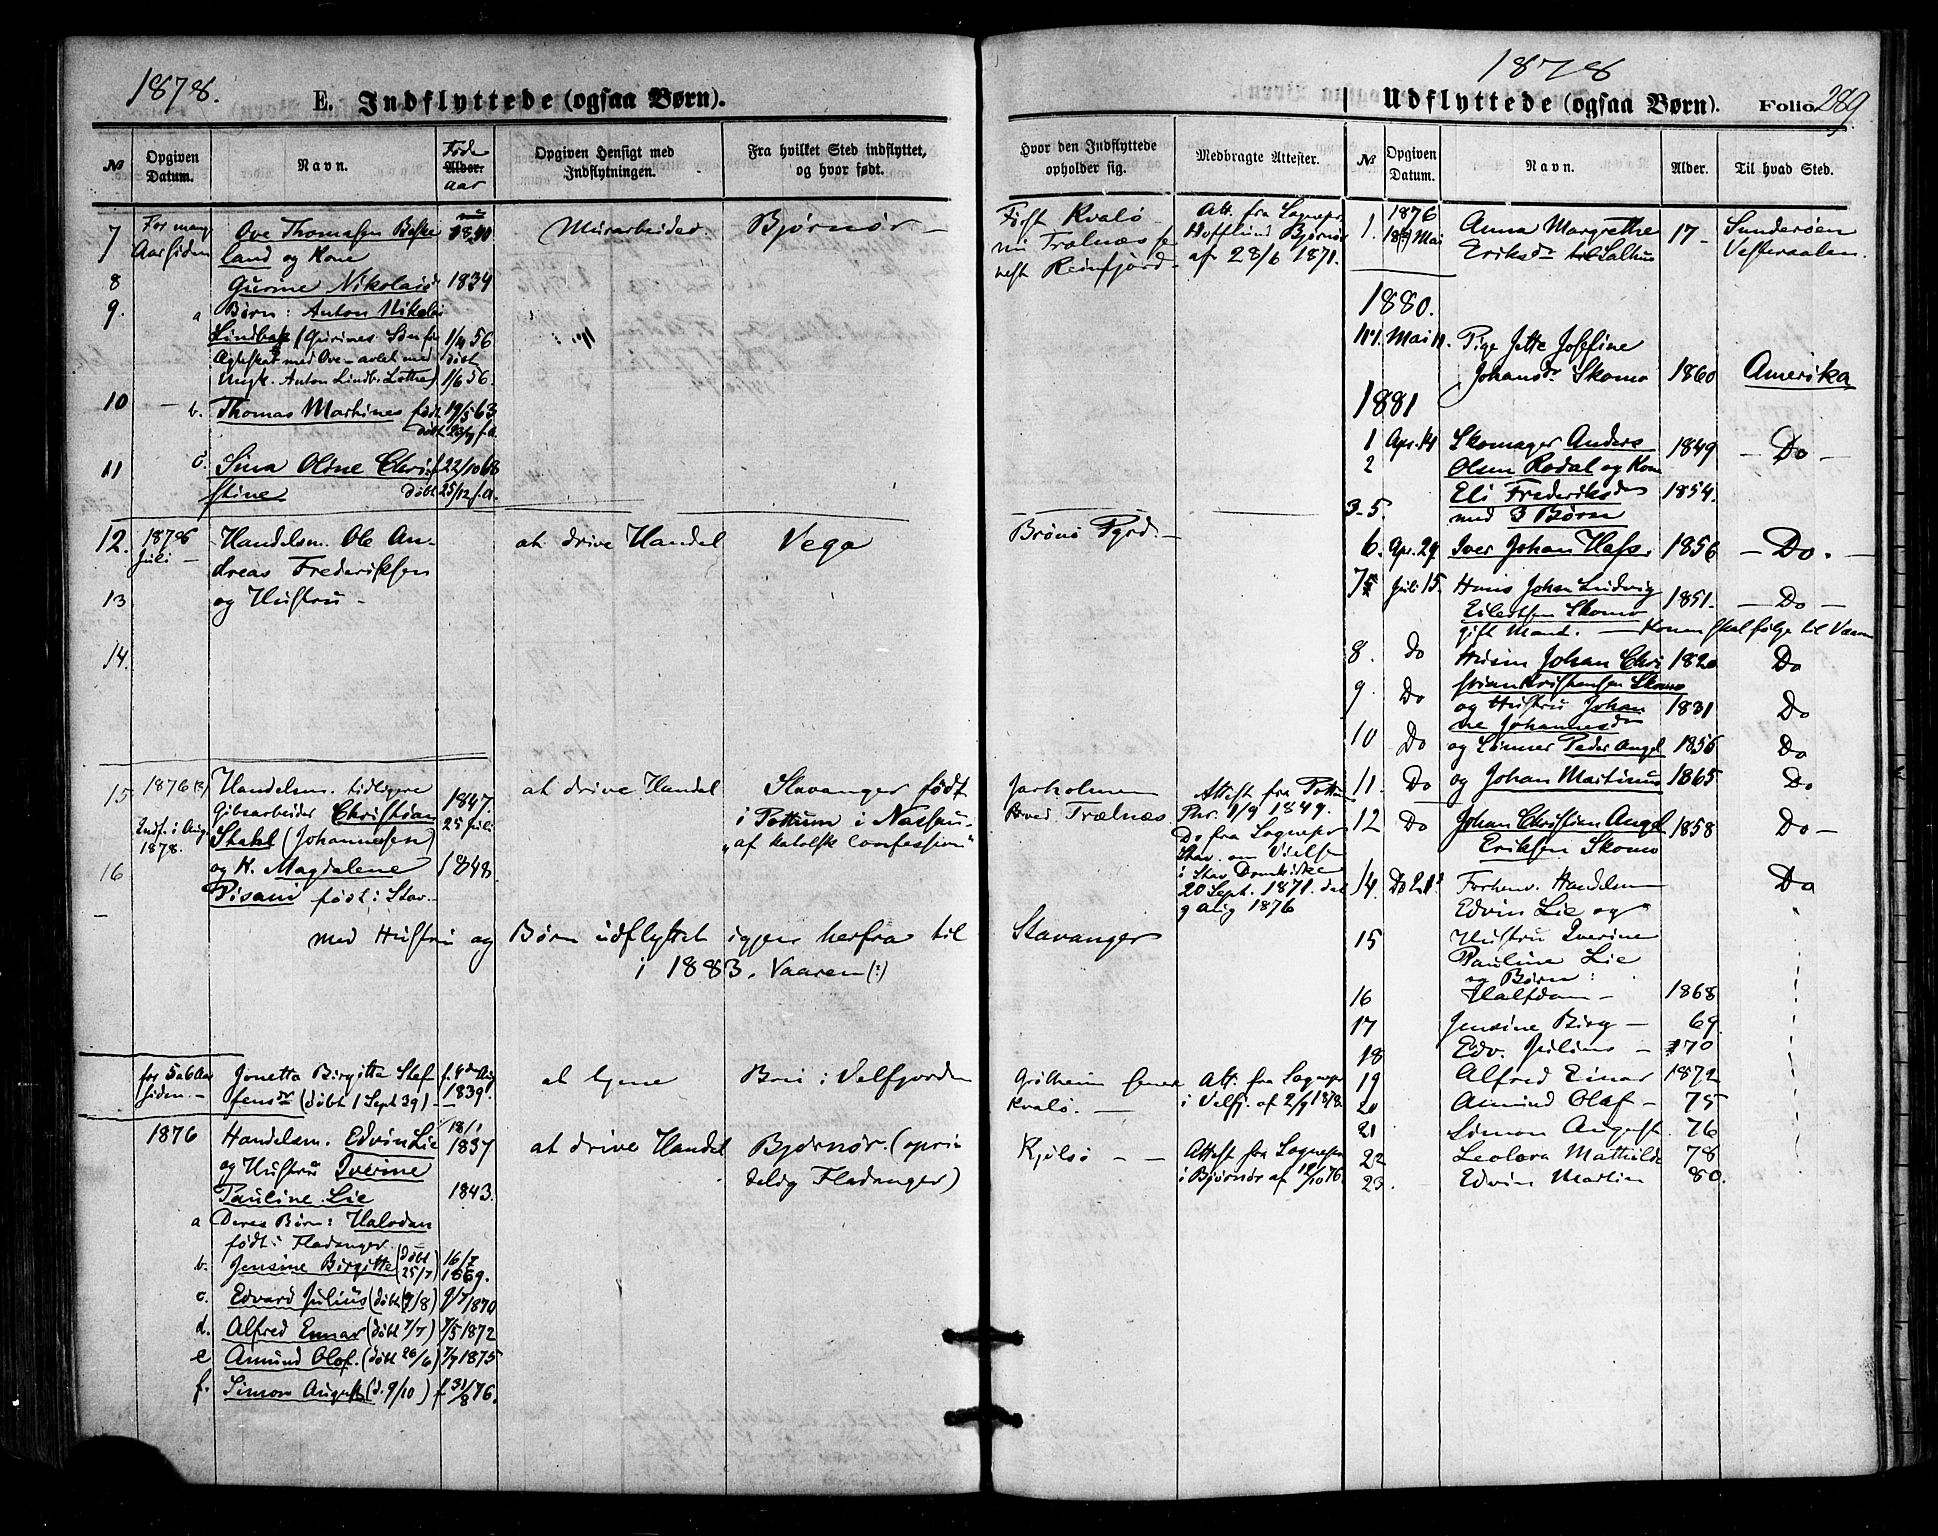 1878.
E. Indflyttede (ogsaa Børn).
№
Opgiven Datum.
Navn.
Føde
Alder.
Aar
Opgiven Hensigt med Indflytningen.
Fra hvilket Sted indflyttet, og hvor født.
7
For mang
Aar siden
Ove Thomasen
land og Kone
Murarbeider
Bjørnør
8
Gurine Nikolaisd
1834
9.
a
Børn: Anton Nikolai
Lindbak (Gurines Søn før
1/4 56
Ægteskab med Ove - avlet med
døbt
Ungk. Anton Lindb.
1/6 56.
10
b.
Thomas Martines født
19/5 63
døbt
11
c.
Sina Oline Chri
22/10 68
stine
døbt 25/12 s.A.
12.
1878
Juli
Handelsm. Ole An-
dreas Frederiksen
og Hustru
at drive Handel
Vega
13
14.
15
1876
Indf. i Aug.
1878.
Handelsm. tidligere
Gibsarbeider Christian
Stahl (Johannessen)
1847.
25 Juli
at drive Handel
Stavanger født
i Pottum i Nassau
"af katolsk Confession"
16
og H. Magdalene
Pisani født i Stav.
1848
med Hustru og Børn udflyttet igjen herfra til
i 1883. Vaaren (?)
for 5 a 6 Aar
siden.
Jonetta Birgitte Stef
fensdr (døbt 1 Sept 39)
1839
at tjene
Brui i Velfjorden
1876
Handelsm. Edvin Lie
og Hustru Iverine
Pauline Lie
18/1
1837
1843.
at drive Handel
Bjørnør. (oprin
delig Fladanger)
a
Deres Børn: Halvdan
født i Fladanger
b.
Jensine Birgitte (døbt 25/7)
16/7
1869.
c.
Edvard Julius (døbt 9/8)
9/7 1870
d.
Alfred Einar (døbt 7/7)
7/5 1872
e
Amund Olof. (døbt 26/6)
1875
f.
Simon August (d. 9/10)
f. 31/8 76.
1878
Udflyttede (ogsaa Børn).
Folio 289.
Hvor den Indflyttede opholder sig.
Medbragte Attester.
№
Opgiven Datum.
Navn.
Alder.
Til hvad Sted.
Først Kvalø
nu Trælnæs
Reinfjord
Att. fra Sognepr
Hofflund Bjørnør
af 28/6 1871.
1.
1876
Mai
Anna Margrethe
Eriksdr Salhus
17
Sunderøen
Vesteraalen.
1880.
Mai
Pige Jette Josefine
Johansdr Skomo
1860
Amerika
1881
1
Apr. 14
Skomager Anders
Olsen Rodal og Kone
1849
Do
2
Eli Frederiksdr
1854.
3-5.
med 3 Børn
Brønø Pgrd.
6.
Apr. 29
Iver Johan
1856
Do.
7
Juli 15.
Hans Johan Ludvig
Eilertsen Skomo
1851.
Do
gift Mand. Konen skal følge til Vaaren
8.
Do
Husm Johan Chri
stian Kristiansen Skomo
1820
Do
9.
Do
og Hustru Johan
ne Johannesdr
1831
Do
10
Do
og Sønner Peder Angel
1856
Do
11.
Do
og Johan Martinus
1865
Do
12
Do
Johan Christian Angel
Eriksen Skomo
1858
Do
Jarholmen
hved Trælnæs
Attest fra Pottum
1/9 1849.
Do fra Sognepr
Stav. om Vielse
i Stav Domkirke
20 Sept. 1871. dat
9 Aug 1876
Stavanger
14.
Forhenv. Handelsm
Edvin Lie og
Do
15
Hustru Iverine
Pauline Lie
og Børn:
16
Halfdan
1868
17
Jensine Birg
69
18
Edv. Julius
70
19
Alfred Einar
1872
20
Amund Olaf
75
21
Simon August
76
22
Leolora Mathilde
78
23.
Edvin Martin
80.
Kvalø.
Att. fra Sognepr
i Velfj. af 2/9 1878.
Kjølsø
Attest fra Sognepr
i Bjørnør af 12/10 76.